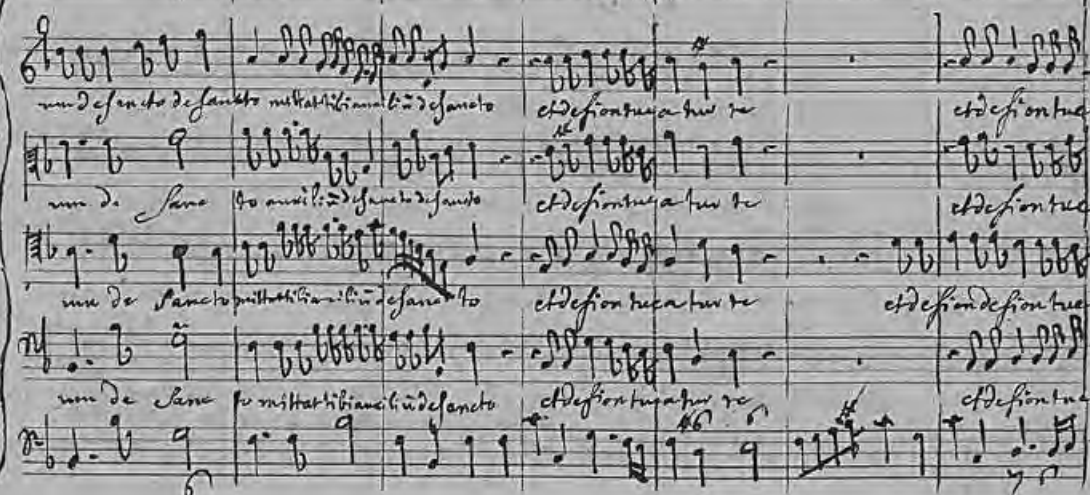 um de sancto de sancto mittat tibi auxiliũ de sancto et de sion tueatur te et de sion tue
um de sanc to auxiliũ de sancto de sancto et de sion tueatur te et de sion tue
um de sancto mittat tibi auxiliũ de sancto et de sion tueatur te et de sion de sion tue
um de sanc to mittat tibi auxiliũ de sancto et de sion tueatur te et de sion tue
6 #6 6 # 7 6